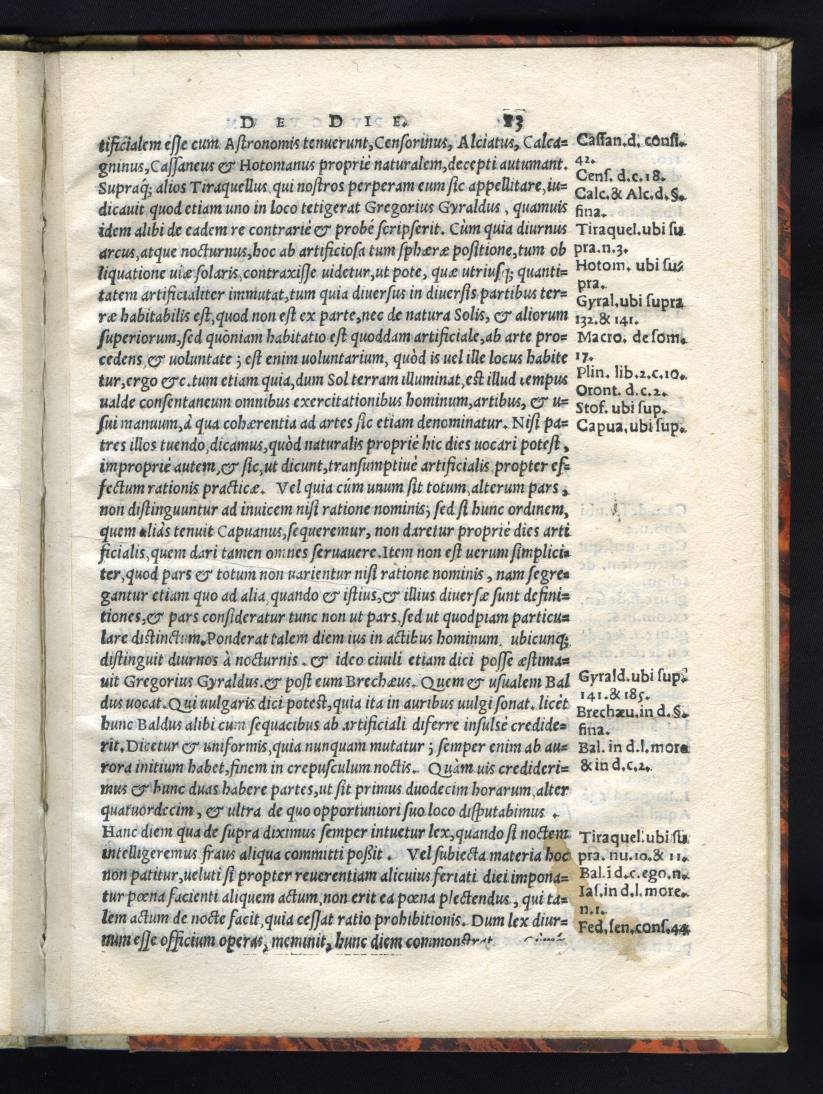 DE DIE. 23
tificialem esse cum Astronomis tenuerunt, Censorinus, Alciatus, Calca=
gninus, Cassaneus & Hotomanus propriè naturalem, decepti autumant.
Supraq́; alios Tiraquellus, qui nostros perperam eum sic appellitare, iu=
dicauit, quod etiam uno in loco tetigerat Gregorius Gyraldus, quamuis
idem alibi de eadem re contrariè & probé scripserit. Cùm quia diurnus
arcus, atque nocturnus, hoc ab artificiosa tum sphæræ positione, tum ob
liquatione uiæ solaris, contraxisse uidetur, ut pote, quæ utriusq́; quanti=
tatem artificialiter immutat, tum quia diuersus in diuersis partibus ter=
ræ habitabilis est, quod non est ex parte, nec de natura Solis, & aliorum
superiorum, sed quòniam habitatio est quoddam artificiale, ab arte pro=
cedens, & voluntate; est enim uoluntarium, quòd is uel ille locus habite
tur, ergo &c. tum etiam quia, dum Sol terram illuminat, est illud tempus
ualde consentaneum omnibus exercitationibus hominum, artibus, & u=
sui manuum, à qua cohærentia ad artes sic etiam denominatur. Nisi pa=
tres illos tuendo, dicamus, quòd naturalis propriè hic dies uocari potest,
impropriè autem, & sic, ut dicunt, transumptiuè artificialis, propter ef=
fectum rationis practicæ. Vel quia cúm unum sit totum, alterum pars,
non distinguuntur ad inuicem nisi ratione nominis; sed si hunc ordinem,
quem aliàs tenuit Capuanus, sequeremur, non daretur propriè dies arti
ficialis, quem dari tamen omnes seruauere. Item non est uerum simplici=
ter, quod pars & totum non uarientur nisi ratione nominis, nam segre=
gantur etiam quo ad alia, quando & istius, & illius diuersæ sunt defini=
tiones, & pars consideratur tunc non ut pars, sed ut quodpiam particu=
lare distinctum. Ponderat talem diem ius in actibus hominum, ubicunq́;
distinguit diurnos à nocturnis. & ideo ciuili etiam dici posse æstima=
uit Gregorius Gyraldus. & post eum Brechæus. Quem & usualem Bal
dus uocat. Qui uulgaris dici potest, quia ita in auribus uulgi sonat. licèt
hunc Baldus alibi cum sequacibus ab artificiali diferre insulsè credide=
rit. Dicetur & uniformis, quia nunquam mutatur; semper enim ab au=
rora initium habet, finem in crepusculum noctis. Quàm uis credideri=
mus & hunc duas habere partes, ut sit primus duodecim horarum, alter
quatuordecim, & ultra de quo opportuniori suo loco disputabimus.
Hanc diem qua de supra diximus semper intuetur lex, quando si noctem
intelligeremus, fraus aliqua committi poßit. Vel subiecta materia hoc
non patitur, ueluti si propter reuerentiam alicuius feriati diei impona=
tur pœna facienti aliquem actum, non erit ea pœna plectendus, qui ta=
lem actum de nocte facit, quia cessat ratio prohibitionis. Dum lex diur=
num esse officium operas, meminit, hunc diem commonstrat.
Cassan.d. consi.
42.
Cens. d.c.18.
Calc.& Alc.d.§.
fina.
Tiraquel.ubi su
pra.n.3.
Hotom. ubi su=
pra.
Gyral.ubi supra
132.& 141.
Macro. de som.
17.
Plin. lib.2.c.10.
Oront. d.c.2.
Stof. ubi sup.
Capua, ubi sup.
Gyrald.ubi sup.
141.& 185.
Brechæu.in d.§.
fina.
Bal. in d.l.more
& in d.c.2.
Tiraquel.ubi su
pra. nu.10.& 11.
Bal.ĩ d.c.ego.n.
Ias.in d.l.more.
n.1.
Fed.sen.cons.44